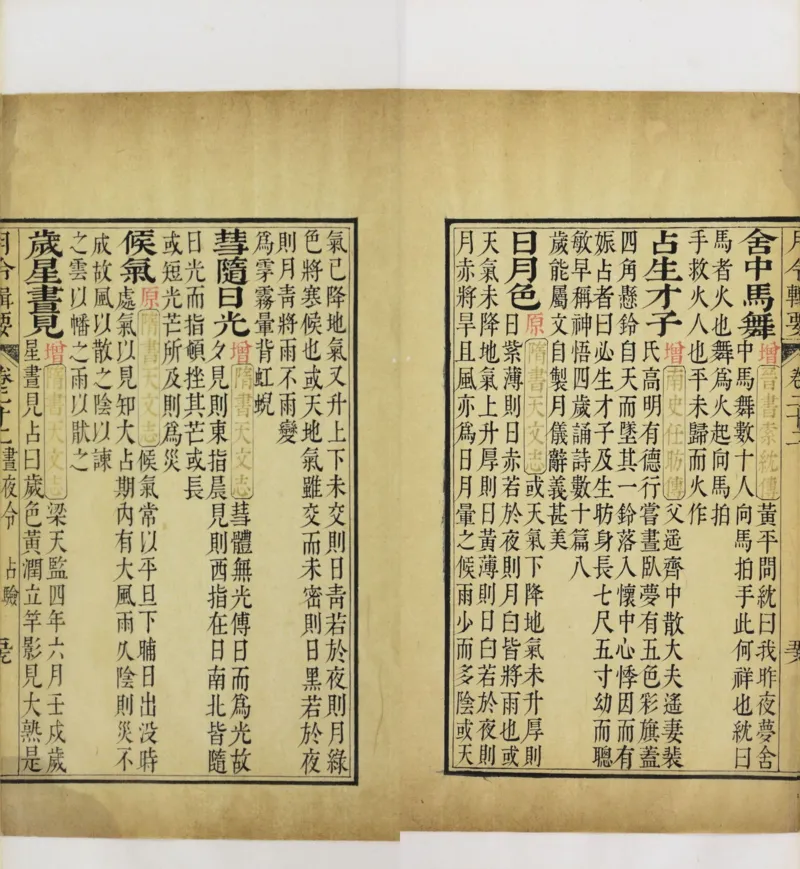 月令輯要 卷二十二
舍中馬舞 增 晉書索紞傳 黃平問紞曰我昨夜夢舍
中馬舞數十人向馬拍手此何祥也紞曰
馬者火也舞為火起向馬拍
手救火人也平未歸而火作
占生才子 增 南史任昉傳 父遙齊中散大夫遙妻裴
氏高明有德行嘗晝臥夢有五色彩旗蓋
四角懸鈴自天而墜其一鈴落入懷中心悸因而有
娠占者曰必生才子及生昉身長七尺五寸幼而聰
敏早稱神悟四歲誦詩數十篇八
歲能屬文自製月儀辭義甚美
日月色 原 隋書天文志 或天氣下降地氣未升厚則
日紫薄則日赤若於夜則月白皆將雨也或
天氣未降地氣上升厚則日黃薄則日白若於夜則
月赤將旱且風亦為日月暈之候雨少而多陰或天
氣已降地氣又升上下未交則日青若於夜則月綠
色將寒候也或天地氣雖交而未密則日黑若於夜
則月青將雨不雨變
為雺霧暈背虹蜺
彗隨日光 增 隋書天文志 彗體無光傅日而為光故
夕見則東指晨見則西指在日南北皆隨
日光而指頓挫其芒或長
或短光芒所及則為災
候氣 原 隋書天文志 候氣常以平旦下晡日出没時
處氣以見知大占期内有大風雨久陰則災不
成故風以散之陰以諫
之雲以幡之雨以厭之
歲星晝見 增 隋書天文志 梁天監四年六月壬戌歲
星晝見占曰歲色黃潤立竿影見大熟是
月令輯要 卷二十二 晝夜令 占驗